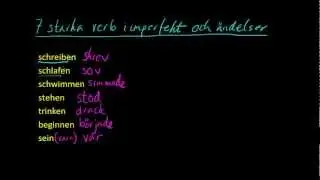 7 starka verb i imperfekt och ändelser
schreiben skrev
schlafen sov
schwimmen simmade
stehen stod
trinken drack
beginnen började
sein (vara) var